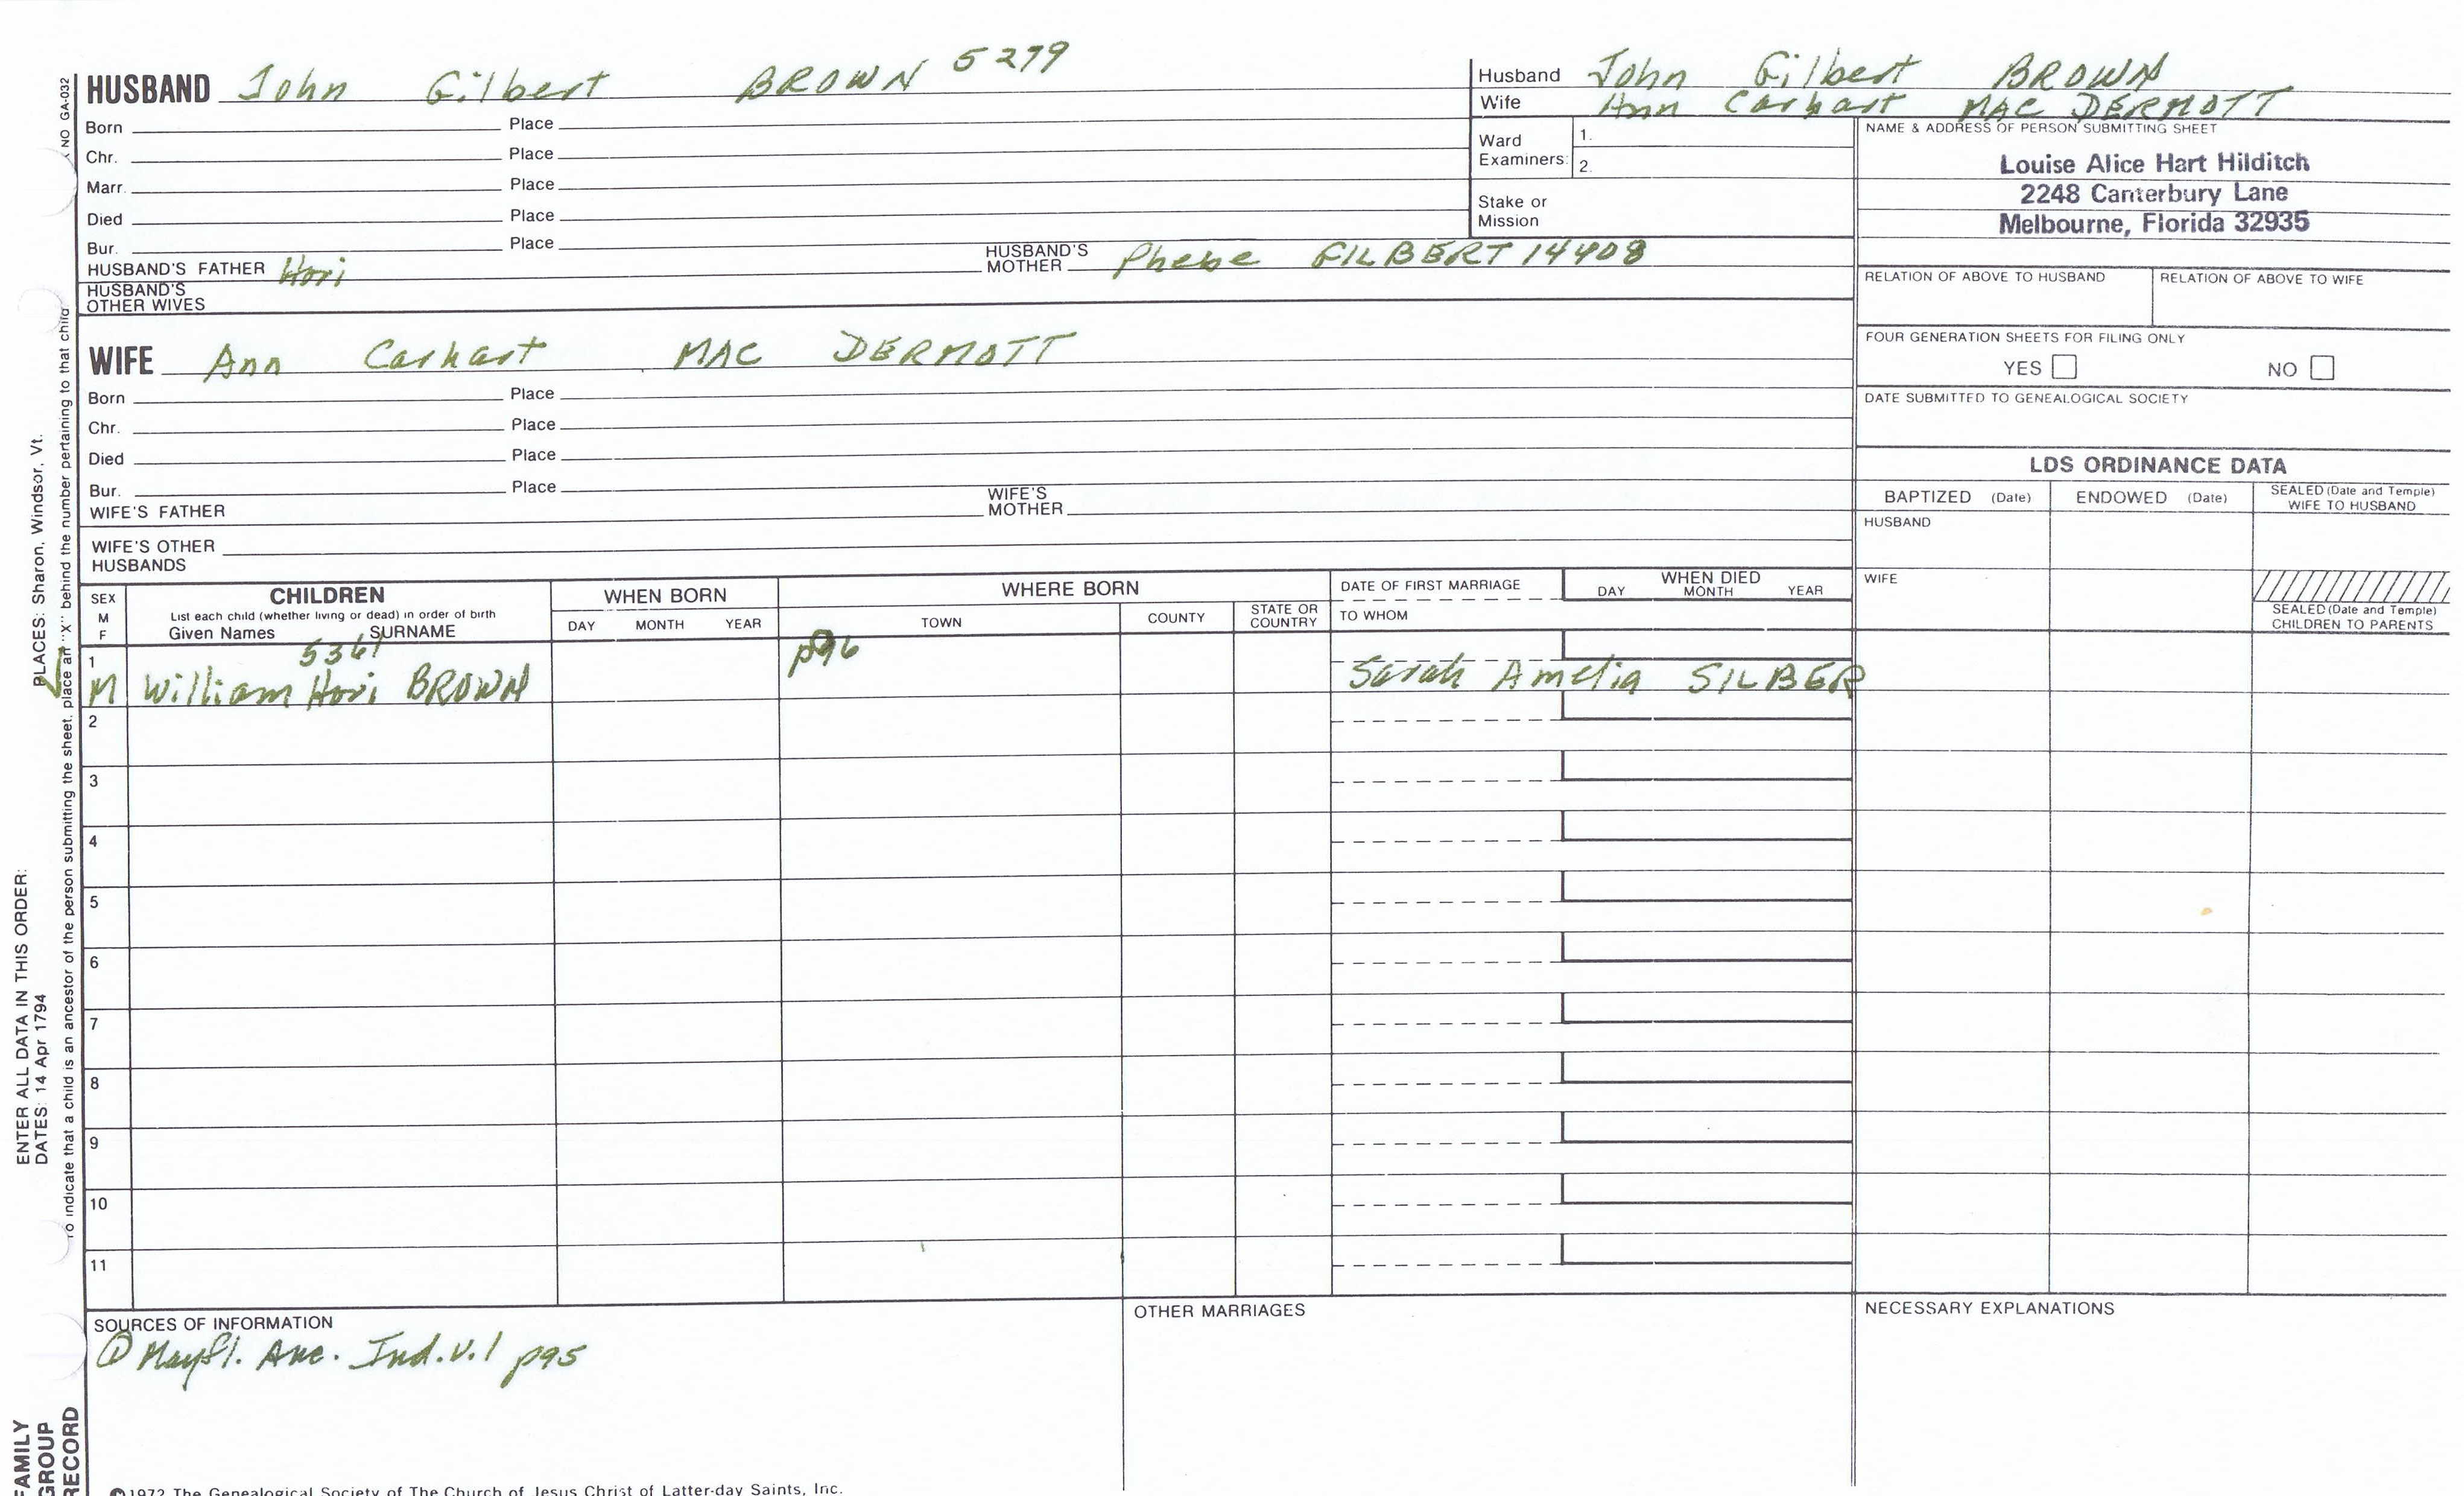 HUSBAND John Gilbert BROWN 5279
Born Place
Chr. Place
Marr. Place
Died Place
Bur. Place
HUSBAND'S FATHER Hori HUSBAND'S MOTHER Phebe GILBERT 14408
HUSBAND'S OTHER WIVES
WIFE Ann Carhart MAC DERMOTT
Born Place
Chr. Place
Died Place
Bur. Place
WIFE'S FATHER WIFE'S MOTHER
WIFE'S OTHER HUSBANDS
Husband John Gilbert BROWN
Wife Ann Carhart MAC DERMOTT
Ward Examiners: 1.
2.
Stake or Mission
NAME & ADDRESS OF PERSON SUBMITTING SHEET
Louise Alice Hart Hilditch
2248 Canterbury Lane
Melbourne, Florida 32935
RELATION OF ABOVE TO HUSBAND RELATION OF ABOVE TO WIFE
FOUR GENERATION SHEETS FOR FILING ONLY
YES NO
DATE SUBMITTED TO GENEALOGICAL SOCIETY
LDS ORDINANCE DATA
BAPTIZED (Date) ENDOWED (Date) SEALED (Date and Temple) WIFE TO HUSBAND
HUSBAND
WIFE
SEALED (Date and Temple) CHILDREN TO PARENTS
SEX M F
CHILDREN
List each child (whether living or dead) in order of birth
Given Names SURNAME
WHEN BORN
DAY MONTH YEAR
WHERE BORN
TOWN COUNTY STATE OR COUNTRY
DATE OF FIRST MARRIAGE
TO WHOM
WHEN DIED
DAY MONTH YEAR
1 5361 p96
M William Hori BROWN Sarah Amelia SILBER
2
3
4
5
6
7
8
9
10
11
SOURCES OF INFORMATION
① Mayfl. Anc. Ind. v.1 p95
OTHER MARRIAGES
NECESSARY EXPLANATIONS
©1972 The Genealogical Society of The Church of Jesus Christ of Latter-day Saints, Inc.
NO GA-032
To indicate that a child is an ancestor of the person submitting the sheet, place an "X" behind the number pertaining to that child
ENTER ALL DATA IN THIS ORDER:
DATES: 14 Apr 1794 PLACES: Sharon, Windsor, Vt.
FAMILY
GROUP
RECORD